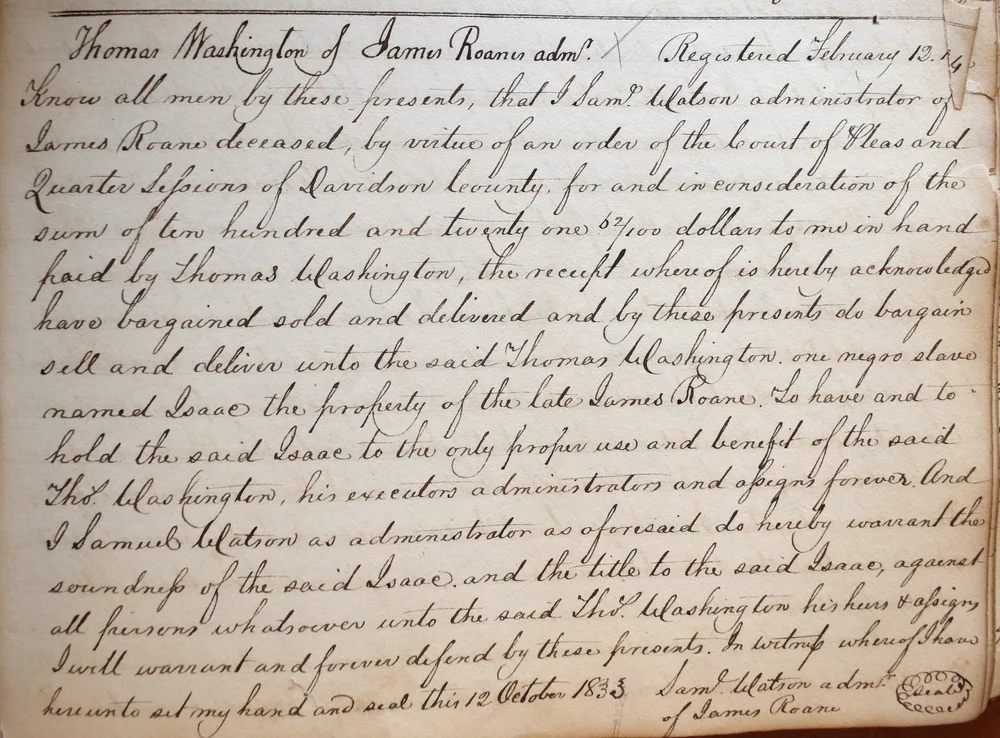 Thomas Washington of James Roanes admr. Registered February 13.
Know all men by these presents, that I Saml. Watson administrator of
James Roane deceased, by virtue of an order of the Court of Pleas and
Quarter Sessions of Davidson County, for and in consideration of the
sum of ten hundred and twenty one 52/100 dollars to me in hand
paid by Thomas Washington, the receipt whereof is hereby acknowledged
have bargained sold and delivered and by these presents do bargain
sell and deliver unto the said Thomas Washington. one negro slave
named Isaac the property of the late James Roane. To have and to
hold the said Isaac to the only proper use and benefit of the said
Thos. Washington, his executors administrators and assigns forever. And
I Samuel Watson as administrator as aforesaid do hereby warrant the
soundness of the said Isaac. and the title to the said Isaac, against
all persons whatsoever unto the said Thos. Washington his heirs & assigns
I will warrant and forever defend by these presents. In witness whereof I have
hereunto set my hand and seal this 12 October 1833 Saml. Watson admr. seal
of James Roane